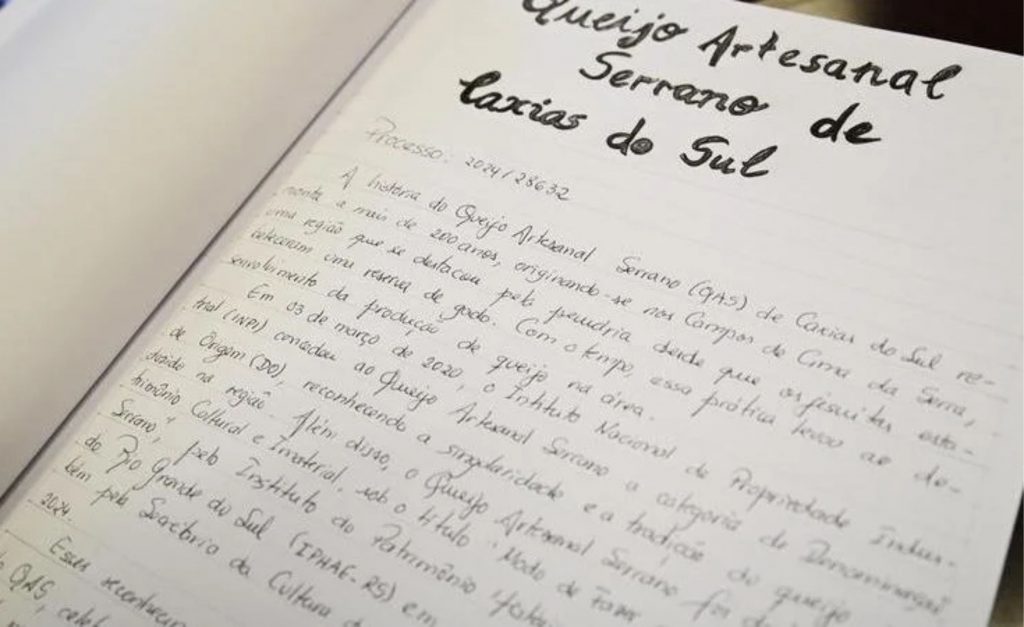 Queijo Artesanal
Serrano de
Caxias do Sul
Processo: 2024/28632
A história do Queijo Artesanal Serrano (QAS) de Caxias do Sul re-
monta a mais de 200 anos, originando-se nos Campos de Cima da Serra,
uma região que se destacou pela pecuária desde que os jesuítas esta-
beleceram uma reserva de gado. Com o tempo, essa prática levou ao de-
senvolvimento da produção de queijo na área.
Em 03 de março de 2020, o Intituto Nacional de Propriedade Indus-
trial (INPI) concedeu ao Queijo Artesanal Serrano a categoria de Denominação
de Origem (DO), reconhecendo a singularidade e a tradição do queijo
na região. Além disso, o Queijo Artesanal Serrano foi
trimônio Cultural e Imaterial, sob o título "Modo de Fazer
Serrano," pelo Instituto do Patrimônio
do Rio Grande do Sul (IPHAE-RS) em
bém pela Secretaria da Cultura d
2024.
Esses reconhecim
QAS, cele